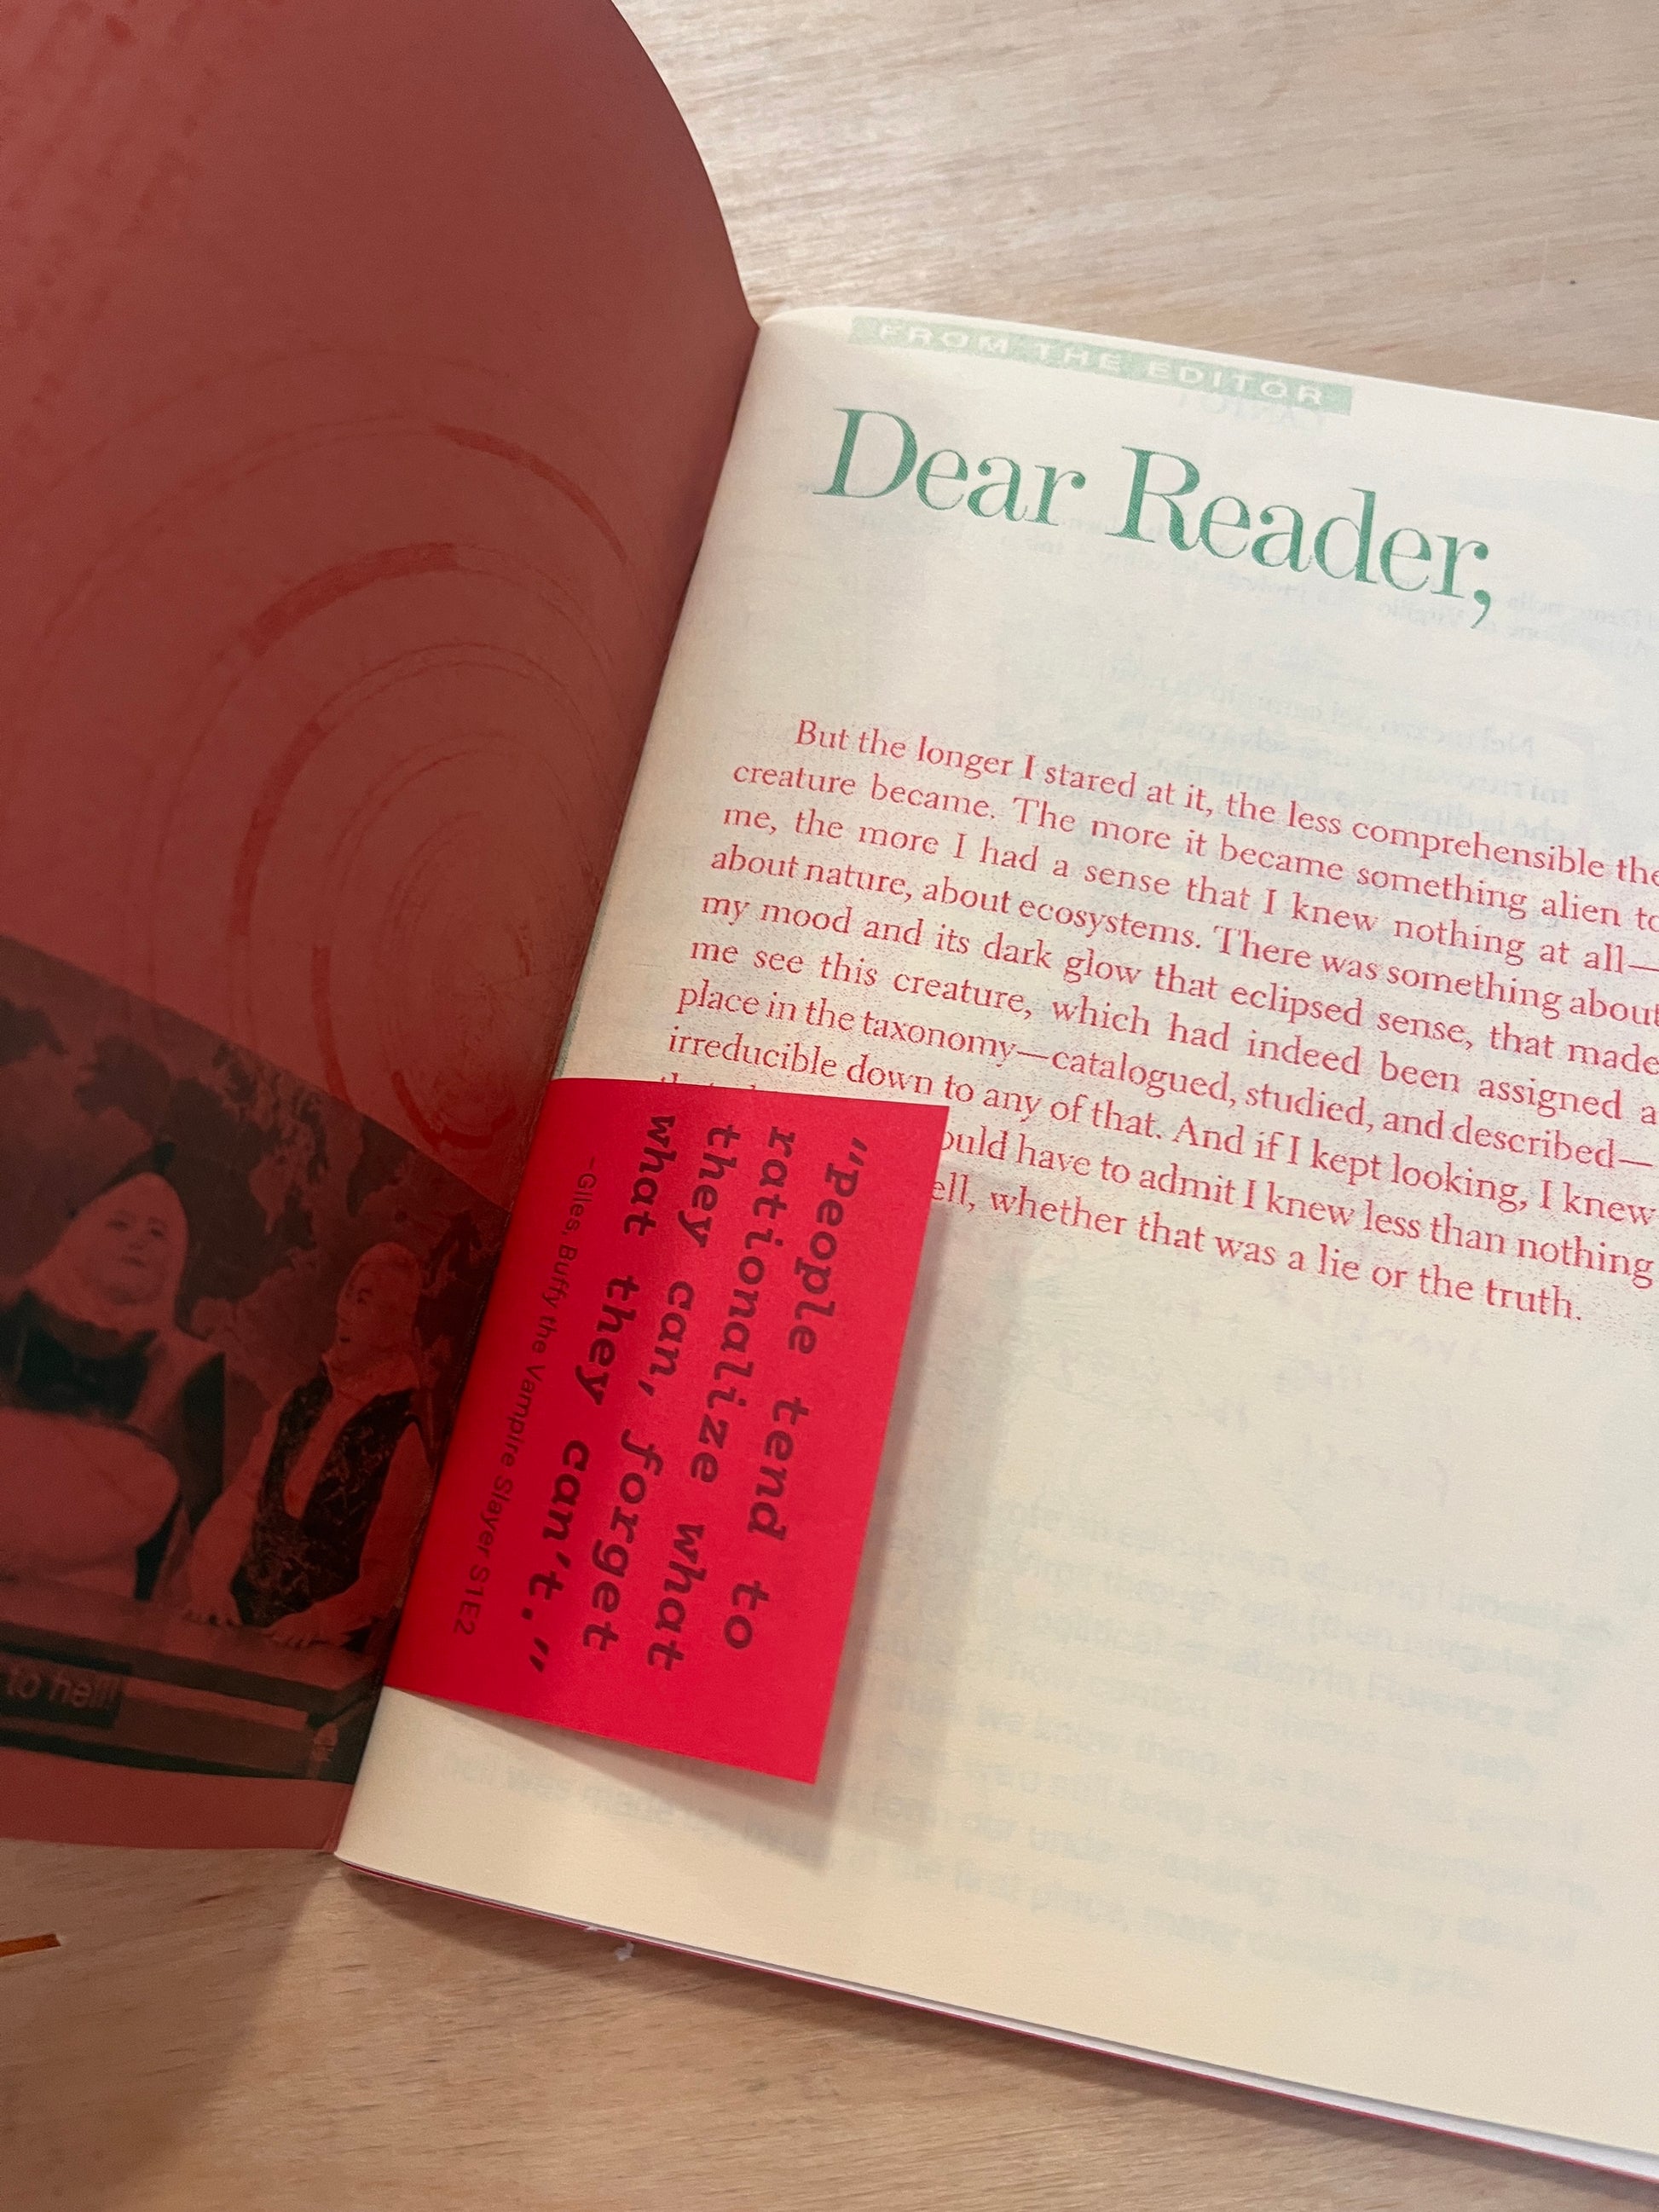 FROM THE EDITOR
Dear Reader,
But the longer I stared at it, the less comprehensible the
creature became. The more it became something alien to
me, the more I had a sense that I knew nothing at all—
about nature, about ecosystems. There was something about
my mood and its dark glow that eclipsed sense, that made
me see this creature, which had indeed been assigned a
place in the taxonomy—catalogued, studied, and described—
irreducible down to any of that. And if I kept looking, I knew
ould have to admit I knew less than nothing
ell, whether that was a lie or the truth.
"people tend to
rationalize what
they can, forget
what they can't."
–Giles, Buffy the Vampire Slayer S1E2
to hell!